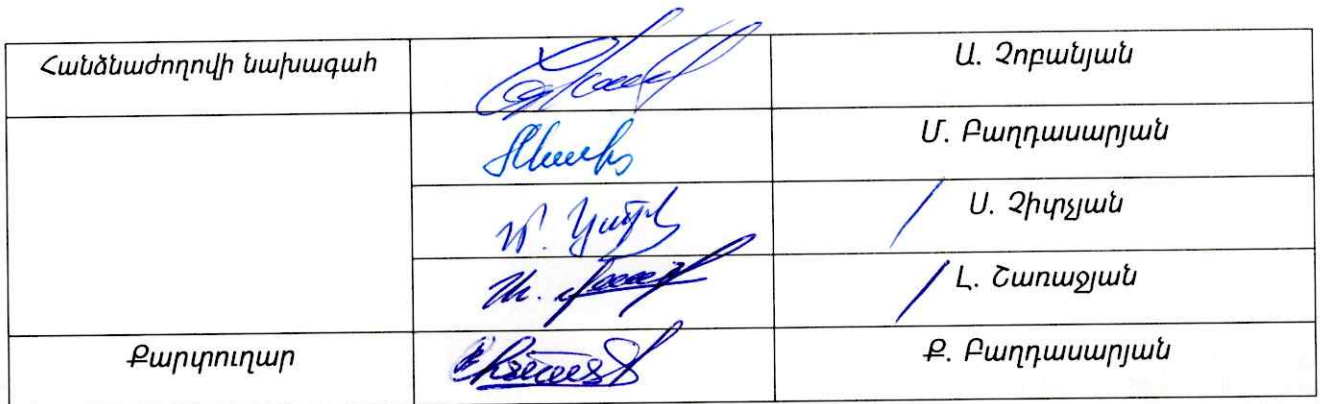 Հանձնաժողովի նախագահ
Ա. Չոբանյան
Մ. Բաղդասարյան
Ս. Չիտչյան
Լ. Շառաջյան
Քարտուղար
Ք. Բաղդասարյան